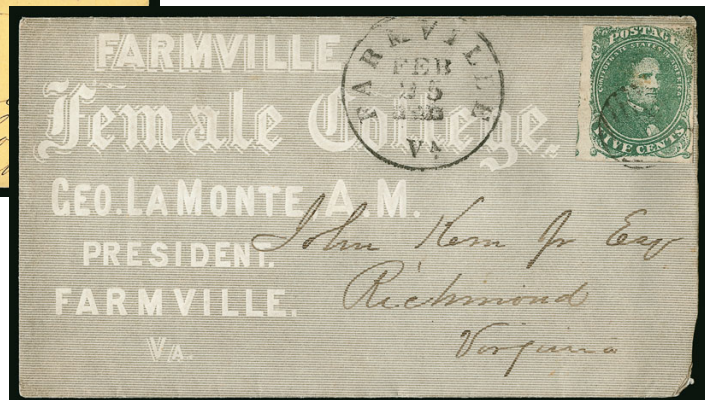 FARMVILLE
Female College.
GEO. LAMONTE A. M.
PRESIDENT.
FARMVILLE.
VA.
FARMVILLE
FEB
VA
POSTAGE
CONFEDERATE STATES OF AMERICA
FIVE CENTS
John Kern Jr Esq
Richmond
Virginia